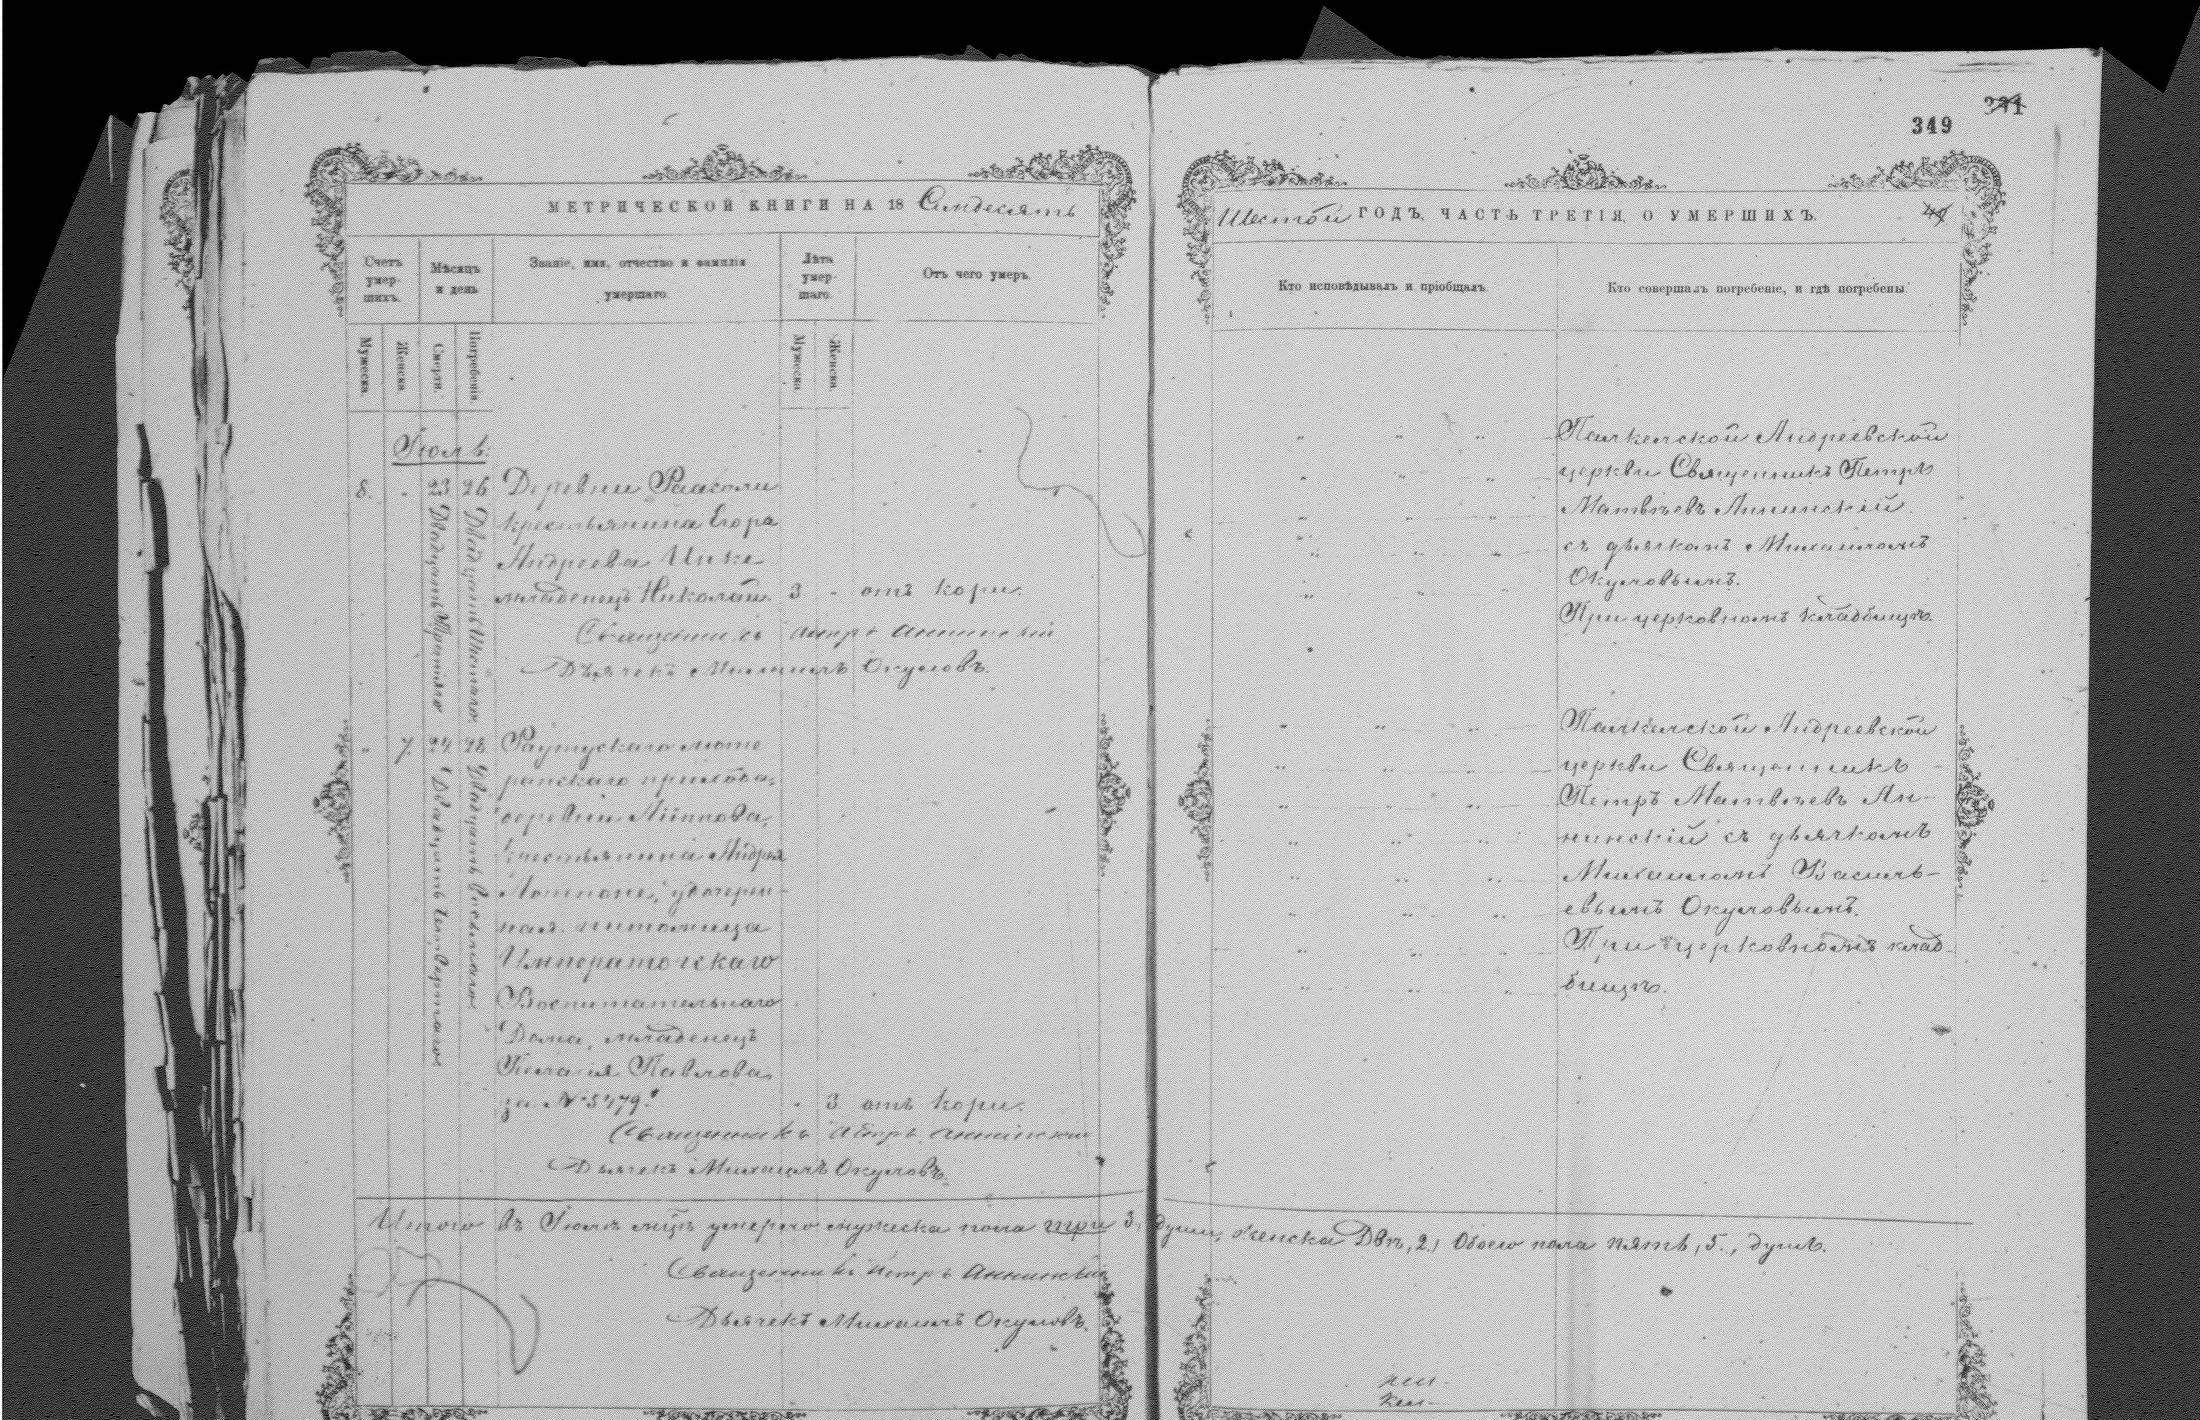 349
МЕТРИЧЕСКОЙ КНИГИ НА 18 Семдесятъ
Шестой ГОДЪ, ЧАСТЬ ТРЕТІЯ, О УМЕРШИХЪ.
Счетъ умер-шихъ.
Мѣсяцъ и день
Званіе, имя, отчество и фамилія умершаго.
Лѣта умер-шаго.
Отъ чего умеръ.
Кто исповѣдывалъ и пріобщалъ.
Кто совершалъ погребеніе, и гдѣ погребены.
Мужеска.
Женска.
Смерти.
Погребенія
Мужеска
Женска.
Іюль.
8. 23 26 Деревни Раасоли
крестьянина Егора
Андреева Инке
младенецъ Николай. 3 - отъ кори.
Священникъ Петръ Аннинскій
Дьячекъ Михаилъ Окуловъ.
Двадцать Третьяго
Двадцать Шестаго
Палкельской Андреевской
церкви Священникъ Петръ
Матвѣевъ Аннинскій
съ дьячкомъ Михаиломъ
Окуловымъ.
При церковномъ кладбищѣ.
7. 24 28 Раутускаго люте
ранскаго прихода,
деревни
крестьянина Андрея
питомица
Императорскаго
Воспитательнаго
Дома, младенецъ
Пелагія Павлова
за № 5479. - 3 отъ кори.
Священникъ Петръ Аннинскій
Дьячекъ Михаилъ Окуловъ.
Двадцать Четвертаго
Двадцать Восьмаго
Палкельской Андреевской
церкви Священникъ
Петръ Матвѣевъ Ан-
нинскій съ дьячкомъ
Михаиломъ Василь-
евымъ Окуловымъ.
При церковномъ клад-
бищѣ.
Итого въ Іюлѣ мцѣ умерло мужеска пола три 3, души, женска Двѣ, 2., Обоего пола пять, 5., душъ.
Священникъ Петръ Аннинскій
Дьячекъ Михаилъ Окуловъ.